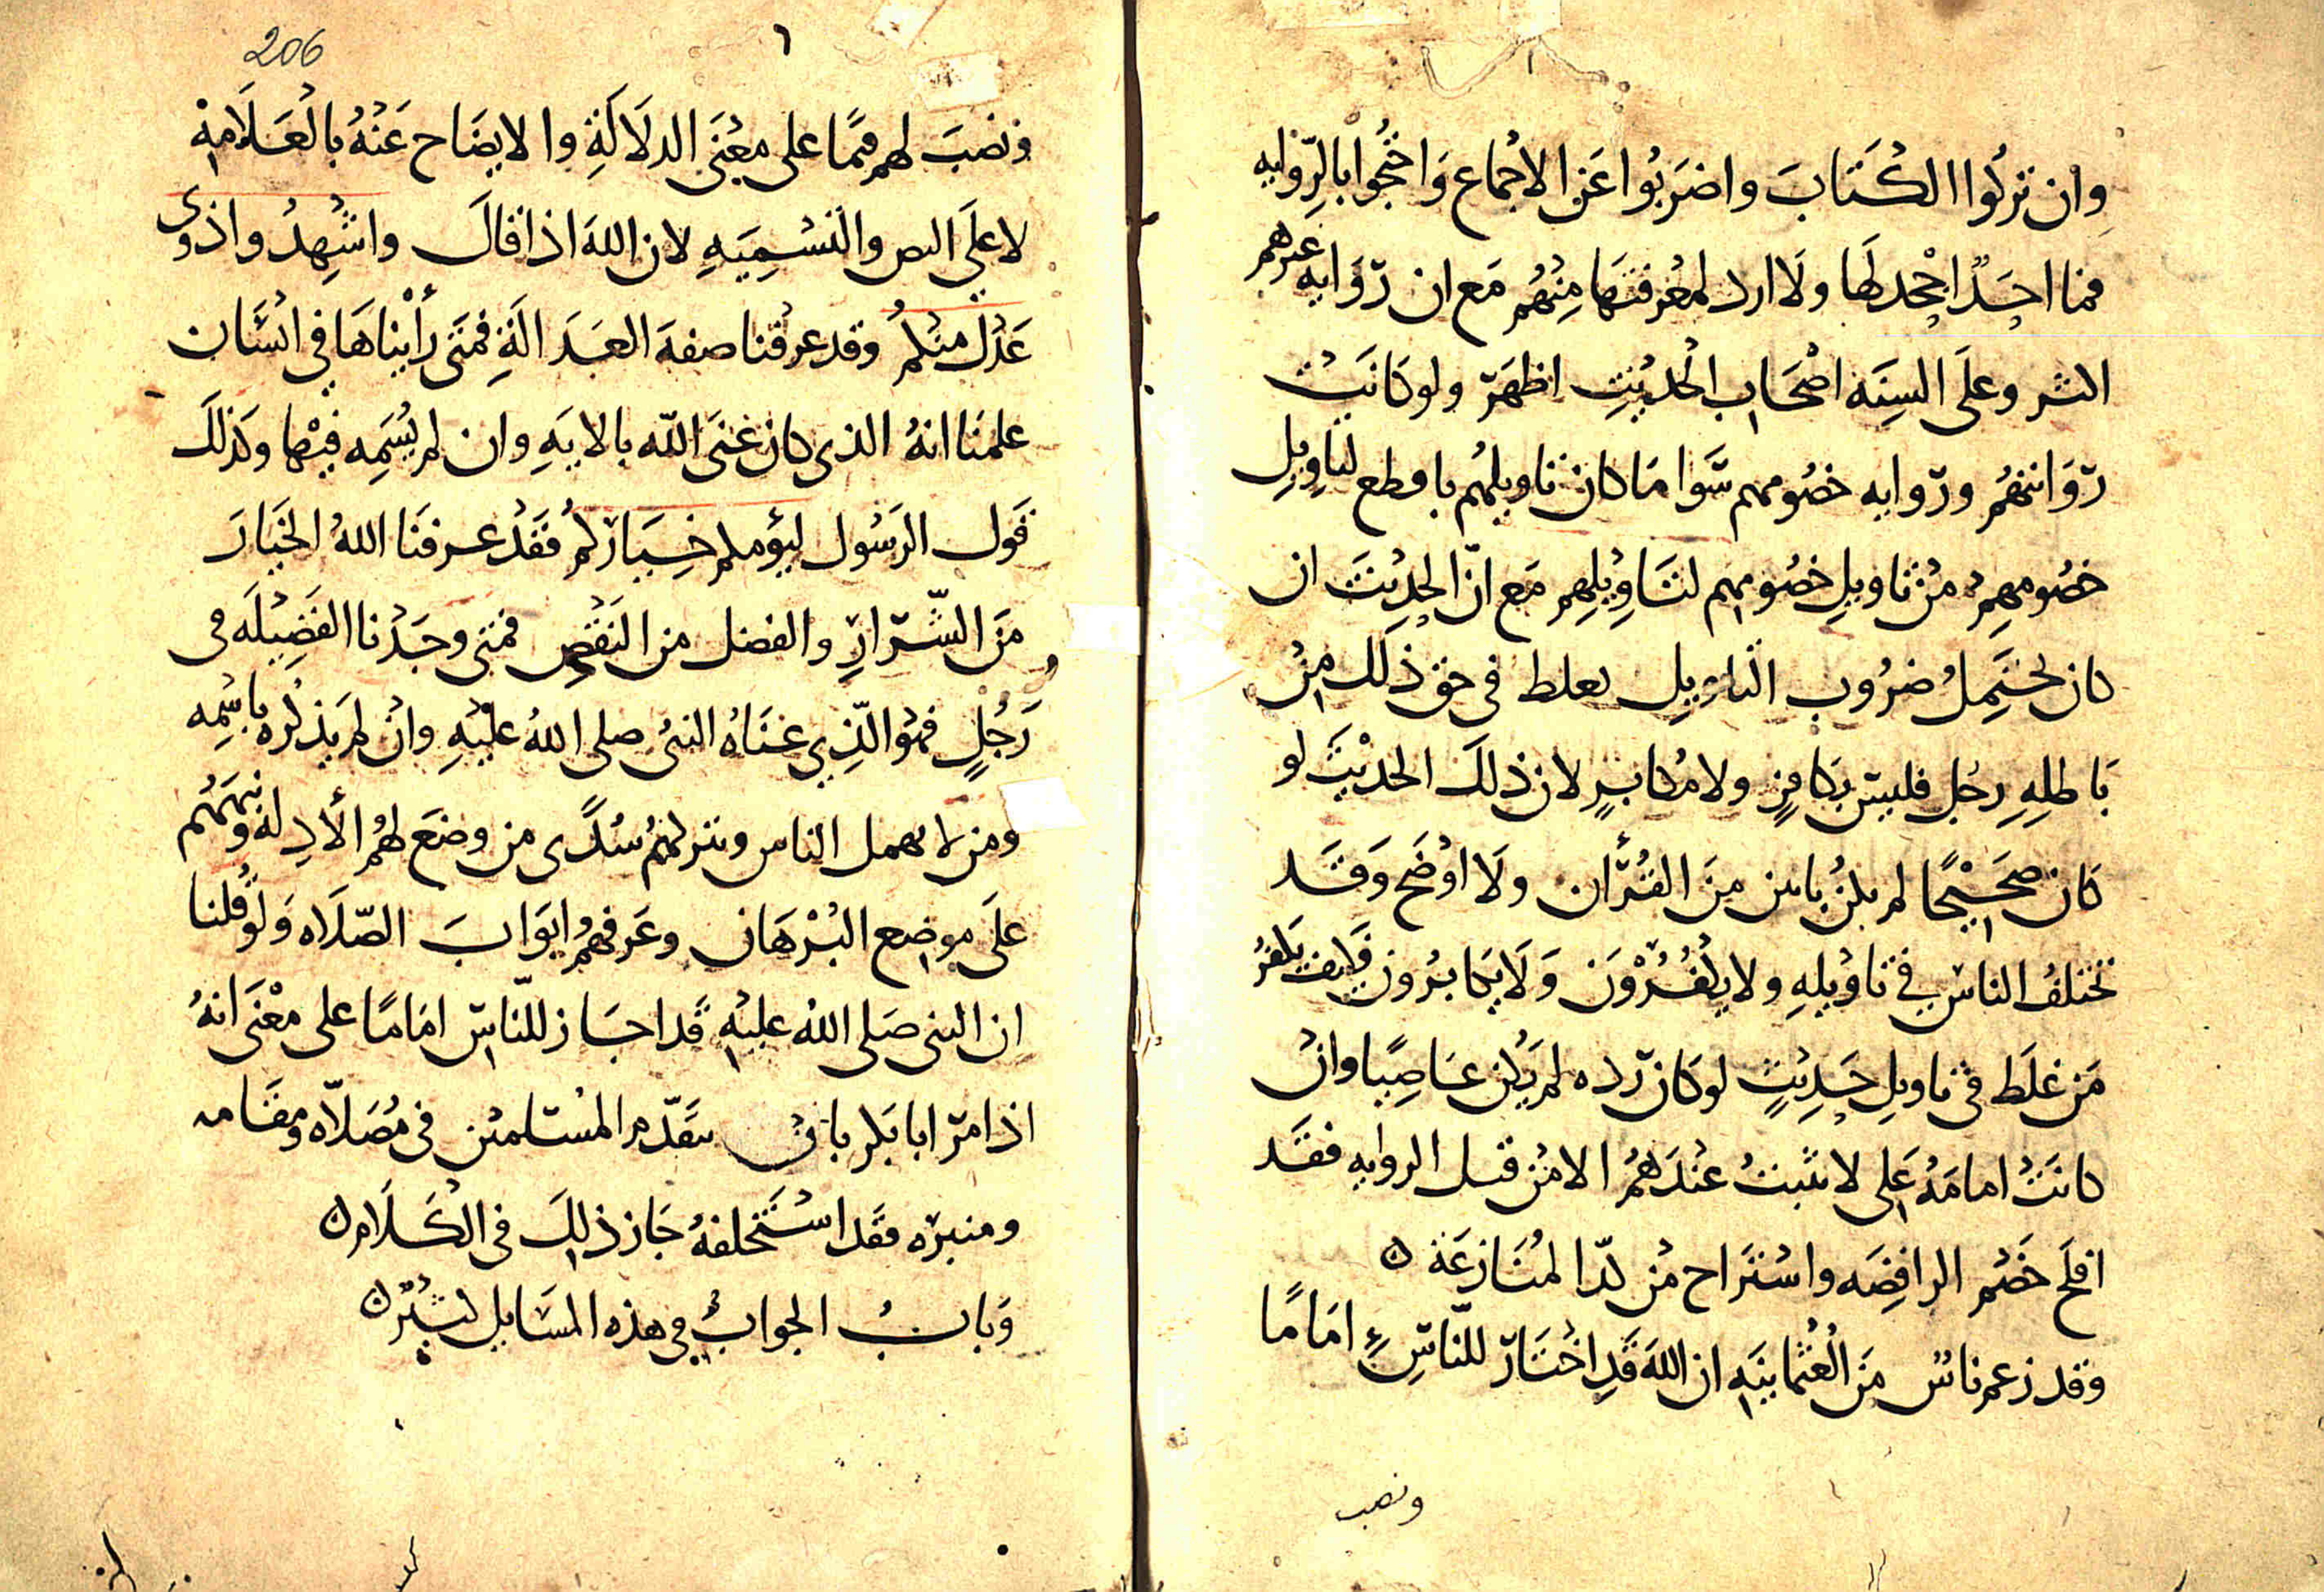 وان تركوا الكتاب واضربوا عن الاجماع واحتجوا بالرواية
فما احدًا اجحد لها ولا ارد لمعرفتها منهم مع ان رواية غيرهم
اكثر وعلى السنة اصحاب الحديث اظهر ولو كانت
روايتهم ورواية خصومهم سوا ما كان تاويلهم باقطع لتاويل
خصومهم من تاويل خصومهم لتاويلهم مع ان الحديث ان
كان يحتمل ضروب التاويل فغلط في حق ذلك من
باطله رجل فليس بكافر ولا مكابر لان ذلك الحديث لو
كان صحيحًا لم يكن بابين من القرآن ولا اوضح وقد
تختلف الناس في تاويله ولا يكفرون ولا يكابرون فكيف يكفر
من غلط في تاويل حديث لو كان رده لم يكن عاصيا وان
كانت امامة علي لا تثبت عندهم الا من قبل الرواية فقد
افلح خصم الرافضة واستراح من كد المنازعة ن
وقد زعم ناس من العثمانية ان الله قد اختار للناس امامًا
ونصب
206
٦
ونصب لهم قيمًا على معنى الدلالة والايضاح عنه بالعلامة
لا على النص والتسمية لان الله اذا قال واشهدوا ذوي
عدل منكم وقد عرفنا صفة العدالة فمتى رأيناها في انسان
علمنا انه الذي كان عنى الله بالاية وان لم يسمه فيها وكذلك
قول الرسول ليؤمكم خياركم فقد عرفنا الله الخيار
من الشرار والفضل من النقص فمتى وجدنا الفضيلة في
رجل فهو الذي عناه النبي صلى الله عليه وان لم يذكره باسمه
ومن لا يهمل الناس ويتركهم سدًى من وضع لهم الأدلة ونبههم
على موضع البرهان وعرفهم ابواب الصلاه ولو قلنا
ان النبي صلى الله عليه قد اختار للناس امامًا على معنى انه
اذا امر ابا بكر بان يتقدم المسلمين في مصلاه ومقامه
ومنبره فقد استخلفه جاز ذلك في الكلام ن
وباب الجواب في هذه المسايل كثير ن